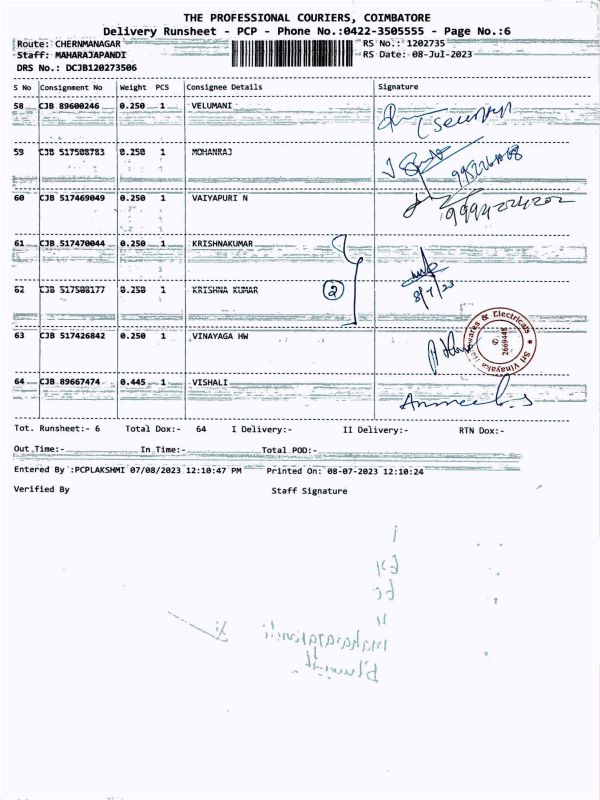 THE PROFESSIONAL COURIERS, COIMBATORE
Delivery Runsheet - PCP - Phone No.:0422-3505555 - Page No.:6
Route: CHERNMANAGAR RS No.: 1202735
Staff: MAHARAJAPANDI RS Date: 08-Jul-2023
DRS No.: DCJB120273506
S No Consignment No Weight PCS Consignee Details Signature
58 CJB 89600246 0.250 1 VELUMANI
59 CJB 517508783 0.250 1 MOHANRAJ
60 CJB 517469049 0.250 1 VAIYAPURI N
9994224202
61 CJB 517470044 0.250 1 KRISHNAKUMAR
2
62 CJB 517508177 0.250 1 KRISHNA KUMAR
8/7/23
63 CJB 517426842 0.250 1 VINAYAGA HW
Sri Vinayaka Hardwares & Electricals
2669448
64 CJB 89667474 0.445 1 VISHALI
Tot. Runsheet:- 6 Total Dox:- 64 I Delivery:- II Delivery:- RTN Dox:-
Out Time:- In Time:- Total POD:-
Entered By :PCPLAKSHMI 07/08/2023 12:10:47 PM Printed On: 08-07-2023 12:10:24
Verified By Staff Signature